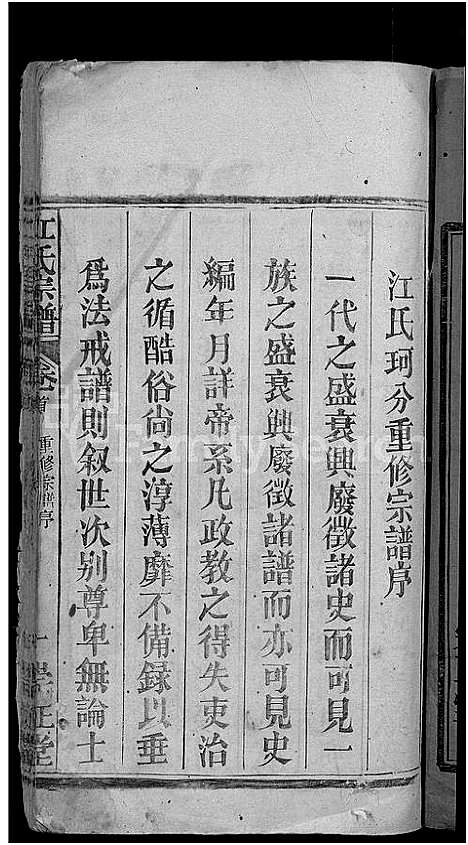 江氏珂分重修宗譜序
一代之盛衰興廢徵諸史而可見一
族之盛衰興廢徵諸譜而亦可見史
編年月詳帝系凡政教之得失吏治
之循酷俗尚之淳薄靡不備録以垂
為法戒譜則叙世次别尊卑無論士
江氏宗譜 卷首 重修宗譜序 一